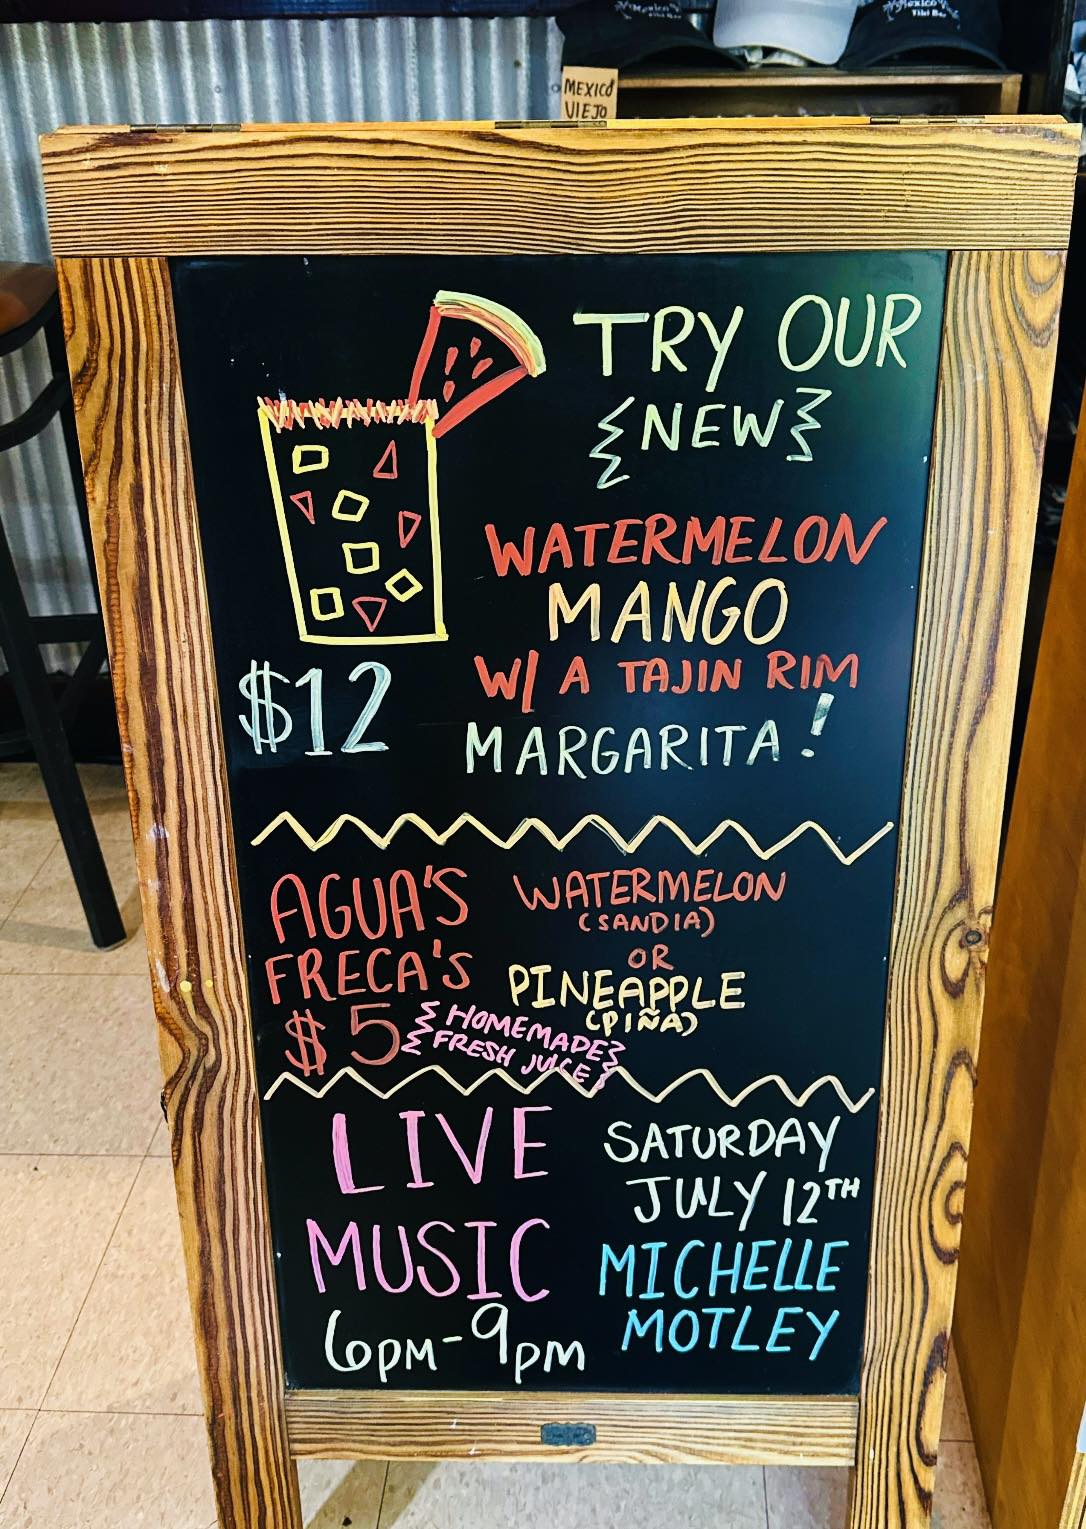 Mexico V
Tiki Bar
MEXICO
VIEJO
TRY OUR
{NEW}
WATERMELON
MANGO
W/ A TAJIN RIM
MARGARITA!
$12
AGUA'S
FRECA'S
$5
{HOMEMADE
FRESH JUICE}
WATERMELON
(SANDIA)
OR
PINEAPPLE
(PIÑA)
LIVE
MUSIC
6PM-9PM
SATURDAY
JULY 12TH
MICHELLE
MOTLEY